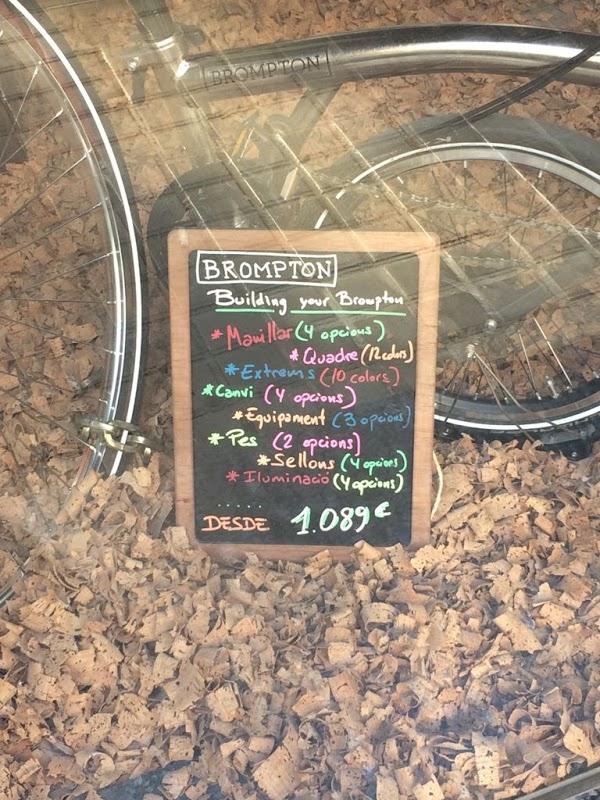 BROMPTON
BROMPTON
Building your Brompton
* Manillar (4 opcions)
* Quadre (12 colors)
* Extrems (10 colors)
* Canvi (4 opcions)
* Equipament (3 opcions)
* Pes (2 opcions)
* Sellons (4 opcions)
* Iluminació (4 opcions)
.....
DESDE 1.089€